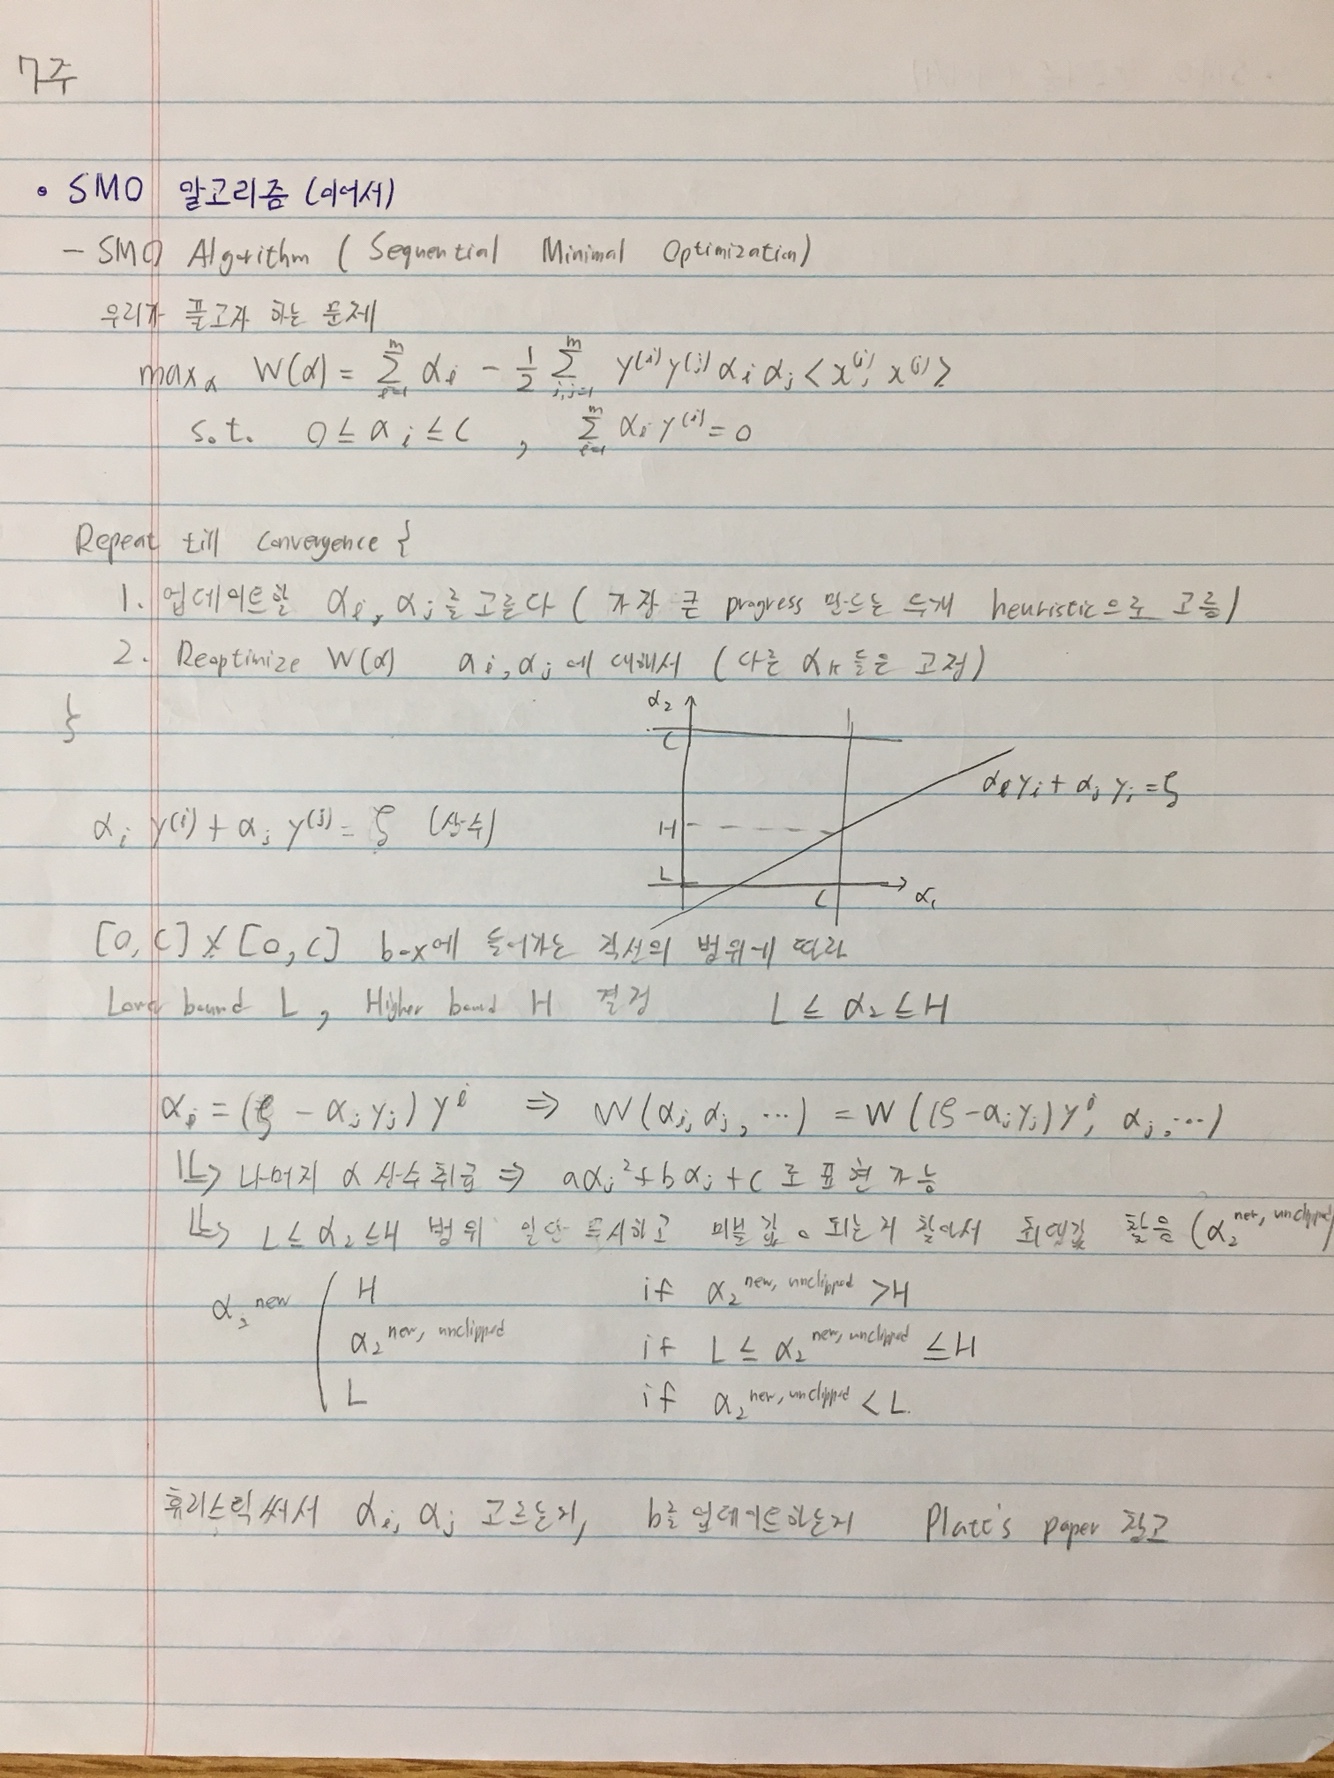 7주
• SMO 알고리즘 (이어서)
- SMO Algorithm ( Sequential Minimal Optimization)
우리가 풀고자 하는 문제
max_α W(α) = Σ_{i=1}^{m} α_i - 1/2 Σ_{i,j=1}^{m} y^{(i)} y^{(j)} α_i α_j < x^{(i)}, x^{(j)} >
s.t. 0 ≤ α_i ≤ C , Σ_{i=1}^{m} α_i y^{(i)} = 0
Repeat till convergence {
1. 업데이트할 α_i, α_j를 고른다 ( 가장 큰 progress 만드는 두개 heuristic으로 고름)
2. Reoptimize W(α) α_i, α_j에 대해서 (다른 α_k들은 고정)
}
α_2
C
H
L
C
α_1
α_i y_i + α_j y_j = ζ
α_i y^{(i)} + α_j y^{(j)} = ζ (상수)
[0, C] × [0, C] box에 들어가는 직선의 범위에 따라
Lower bound L, Higher bound H 결정 L ≤ α_2 ≤ H
α_i = (ζ - α_j y_j) y^i ⇒ W(α_i, α_j, ...) = W((ζ - α_j y_j) y^i, α_j, ...)
↳ 나머지 α 상수취급 ⇒ aα_j^2 + bα_j + c 로 표현 가능
↳ L ≤ α_2 ≤ H 범위 일단 무시하고 미분값 0 되는지 찾아서 최댓값 찾음 (α_2^{new, unclipped})
α_2^{new} ( H if α_2^{new, unclipped} > H
α_2^{new, unclipped} if L ≤ α_2^{new, unclipped} ≤ H
L if α_2^{new, unclipped} < L.
휴리스틱 써서 α_i, α_j 고르는거, b를 업데이트하는거 Platt's paper 참고